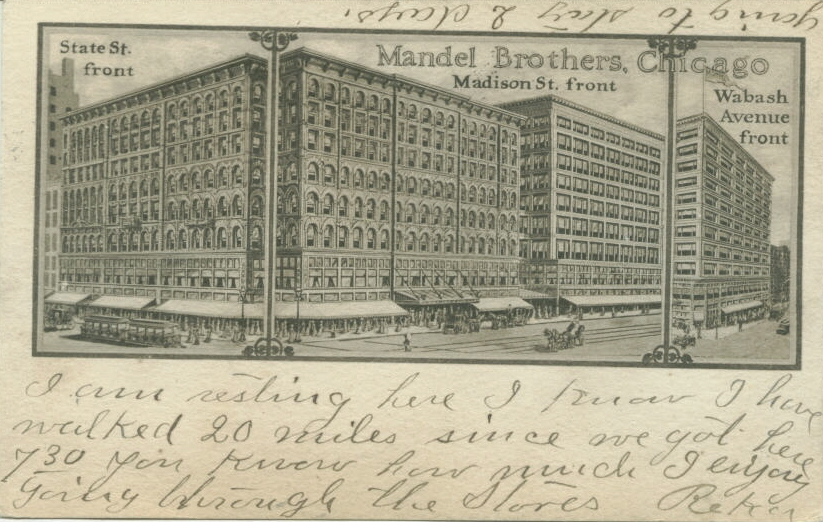 going to stay 2 days.
State St.
front
Mandel Brothers, Chicago
Madison St. front
Wabash
Avenue
front
I am resting here I know I have
walked 20 miles since we got here
7 30 you know how much I enjoy
going through the stores